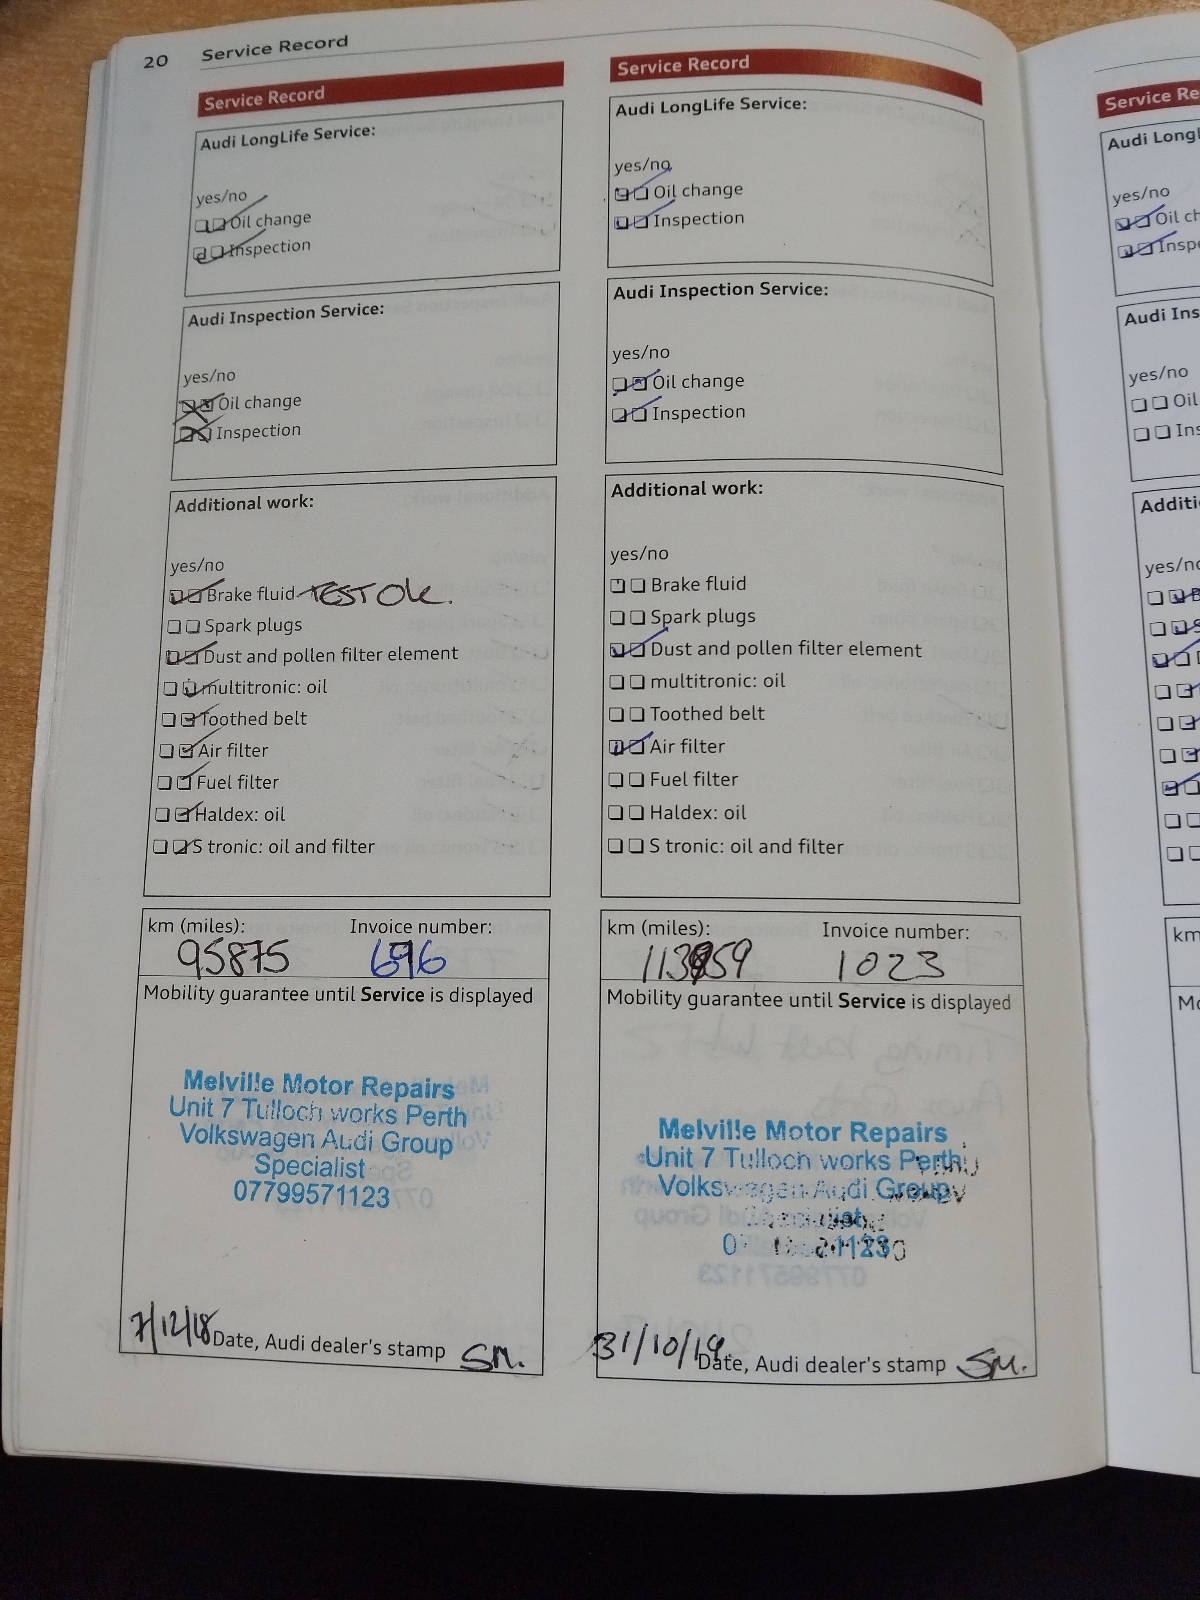 20 Service Record
Service Record
Audi LongLife Service:
yes/no
Oil change
Inspection
Audi Inspection Service:
yes/no
Oil change
Inspection
Additional work:
yes/no
Brake fluid TEST OK.
Spark plugs
Dust and pollen filter element
multitronic: oil
Toothed belt
Air filter
Fuel filter
Haldex: oil
S tronic: oil and filter
km (miles): Invoice number:
95875 696
Mobility guarantee until Service is displayed
Melville Motor Repairs
Unit 7 Tulloch works Perth
Volkswagen Audi Group
Specialist
07799571123
7/12/18 Date, Audi dealer's stamp SM.
Service Record
Audi LongLife Service:
yes/no
Oil change
Inspection
Audi Inspection Service:
yes/no
Oil change
Inspection
Additional work:
yes/no
Brake fluid
Spark plugs
Dust and pollen filter element
multitronic: oil
Toothed belt
Air filter
Fuel filter
Haldex: oil
S tronic: oil and filter
km (miles): Invoice number:
1023
Mobility guarantee until Service is displayed
Melville Motor Repairs
Unit 7 Tulloch works Perth
Volkswagen Audi Group
31/10/19. Date, Audi dealer's stamp SM.
Service Re
Audi Longl
yes/no
Oil ch
Inspe
Audi Ins
yes/no
Oil
Ins
Additi
yes/no
km
Mo